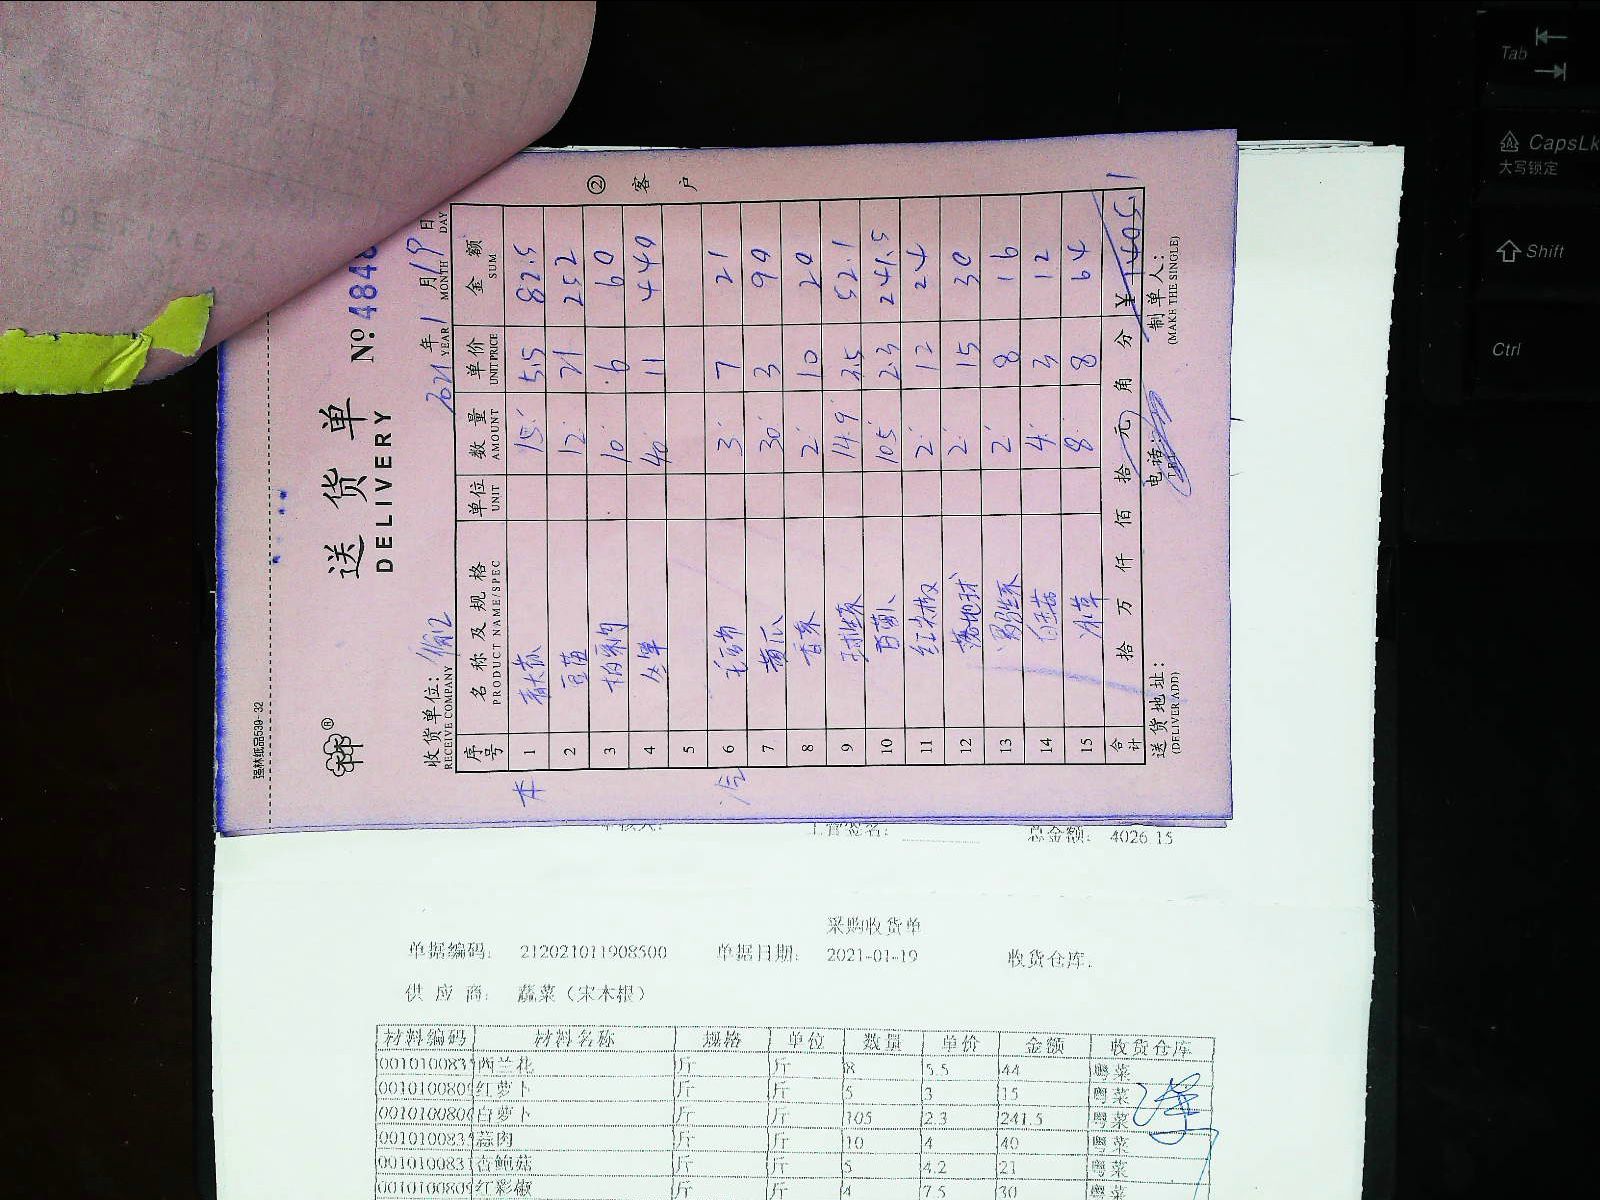 强林纸品539-32
送货单
DELIVERY
№ 4848
收货单位:
RECEIVE COMPANY
2021年1月19日
YEAR MONTH DAY
② 客户
序号 名称及规格 单位 数量 单价 金额
PRODUCT NAME/SPEC UNIT AMOUNT UNIT PRICE SUM
本
1 15 5.5 82.5
2 豆苗 12 21 252
3 10 6 60
4 40 11 440
5
6 3 7 21
7 黄瓜 30 3 90
8 香菜 2 10 20
9 球生菜 14.9 3.5 52.1
10 白萝卜 105 2.3 241.5
11 红尖椒 2 12 24
12 2 15 30
13 2 8 16
14 4 3 12
15 冰草 8 8 64
合计 拾 万 仟 佰 拾 元 角 分 ¥ 1405.1
送货地址: 电话: 制单人:
(DELIVER ADD) (TEL) (MAKE THE SINGLE)
审核人: 主管签名: 总金额: 4026.15
采购收货单
单据编码: 212021011908500 单据日期: 2021-01-19 收货仓库:
供应商: 蔬菜（宋本根）
材料编码 材料名称 规格 单位 数量 单价 金额 收货仓库
001010083 西兰花 斤 斤 8 5.5 44 粤菜
001010080 红萝卜 斤 斤 5 3 15 粤菜
001010080 白萝卜 斤 斤 105 2.3 241.5 粤菜
001010083 蒜肉 斤 斤 10 4 40 粤菜
001010083 杏鲍菇 斤 斤 5 4.2 21 粤菜
001010080 红彩椒 斤 斤 4 7.5 30 粤菜
Tab
CapsLk
大写锁定
Shift
Ctrl